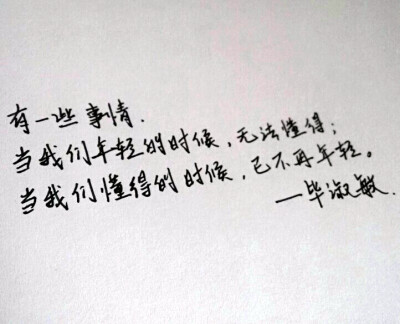 有一些事情.
当我们年轻的时候,无法懂得;
当我们懂得的时候,已不再年轻。
一毕淑敏.